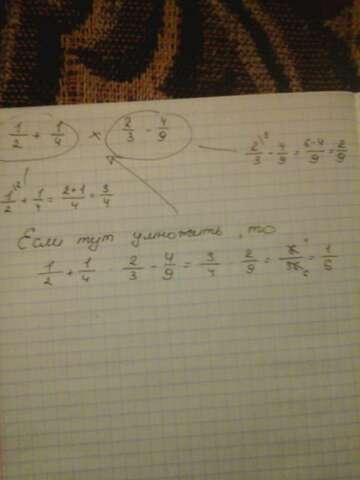 1/2 + 1/4 × 2/3 - 4/9
2/3 - 4/9 = 6-4/9 = 2/9
1/2 + 1/4 = 2+1/4 = 3/4
Если тут умножить, то
1/2 + 1/4 2/3 - 4/9 = 3/4 2/9 = 6/36 = 1/6